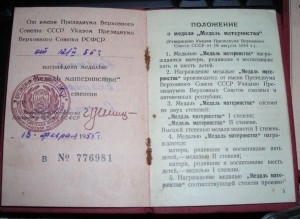 От имени Президиума Верховного
Совета СССР Указом Президиума
Верховного Совета РСФСР
от 12/II 55 г.
награждена медалью
"Медаль материнства"
степени
15 феврал 1955 г.
В № 776981
ПОЛОЖЕНИЕ
о медали „Медаль материнства"
1. Медалью „Медаль материнства" награждаются матери, родившие и воспитавшие пять и шесть детей.
2. Награждение медалью „Медаль материнства" производится от имени Президиума Верховного Совета СССР указами Президиумов Верховных Советов союзных и автономных республик.
3. „Медаль материнства" состоит из двух степеней:
„Медаль материнства" I степени,
„Медаль материнства" II степени.
Высшей степенью медали является I степень.
4. „Медалью материнства" награждаются:
матери, родившие и воспитавшие пять детей, — медалью II степени;
матери, родившие и воспитавшие шесть детей, — медалью I степени.
5. Награждение медалью „Медаль материнства" соответствующей степени